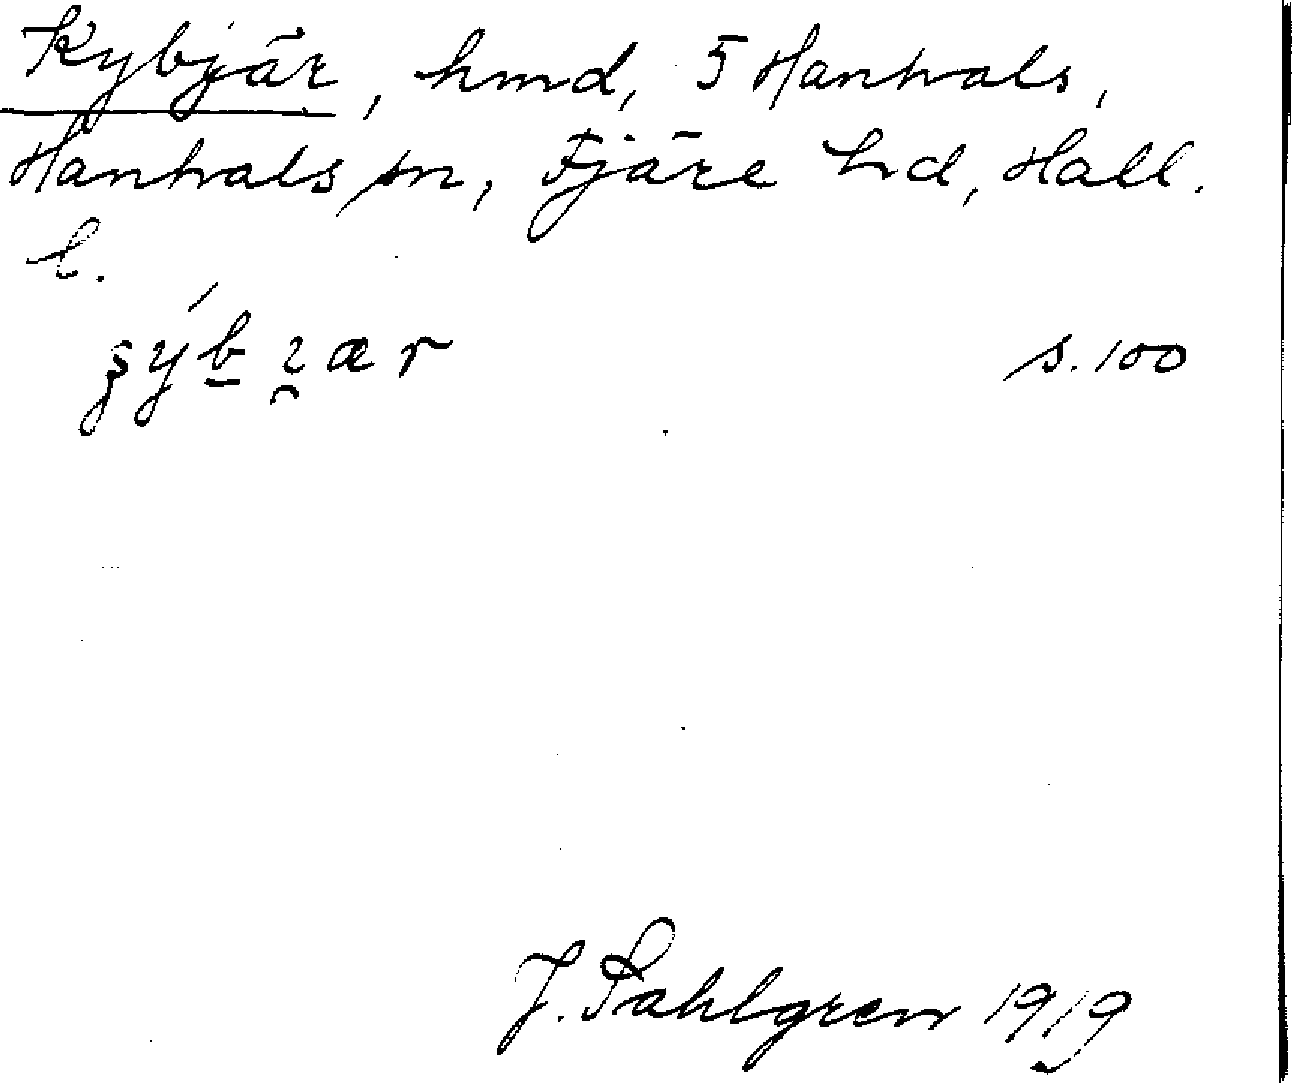 Kybjär, hmd, 5 Hanhals,
Hanhals sn, Fjäre hd, Hall.
l.
s. 100
J. Sahlgren 1919